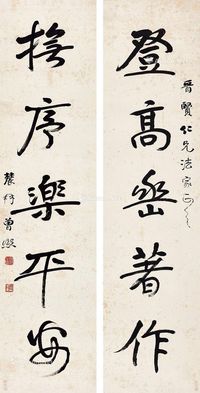 登高著作
晉賢仁兄法家正之
撫序楽平安
農髯曾熙